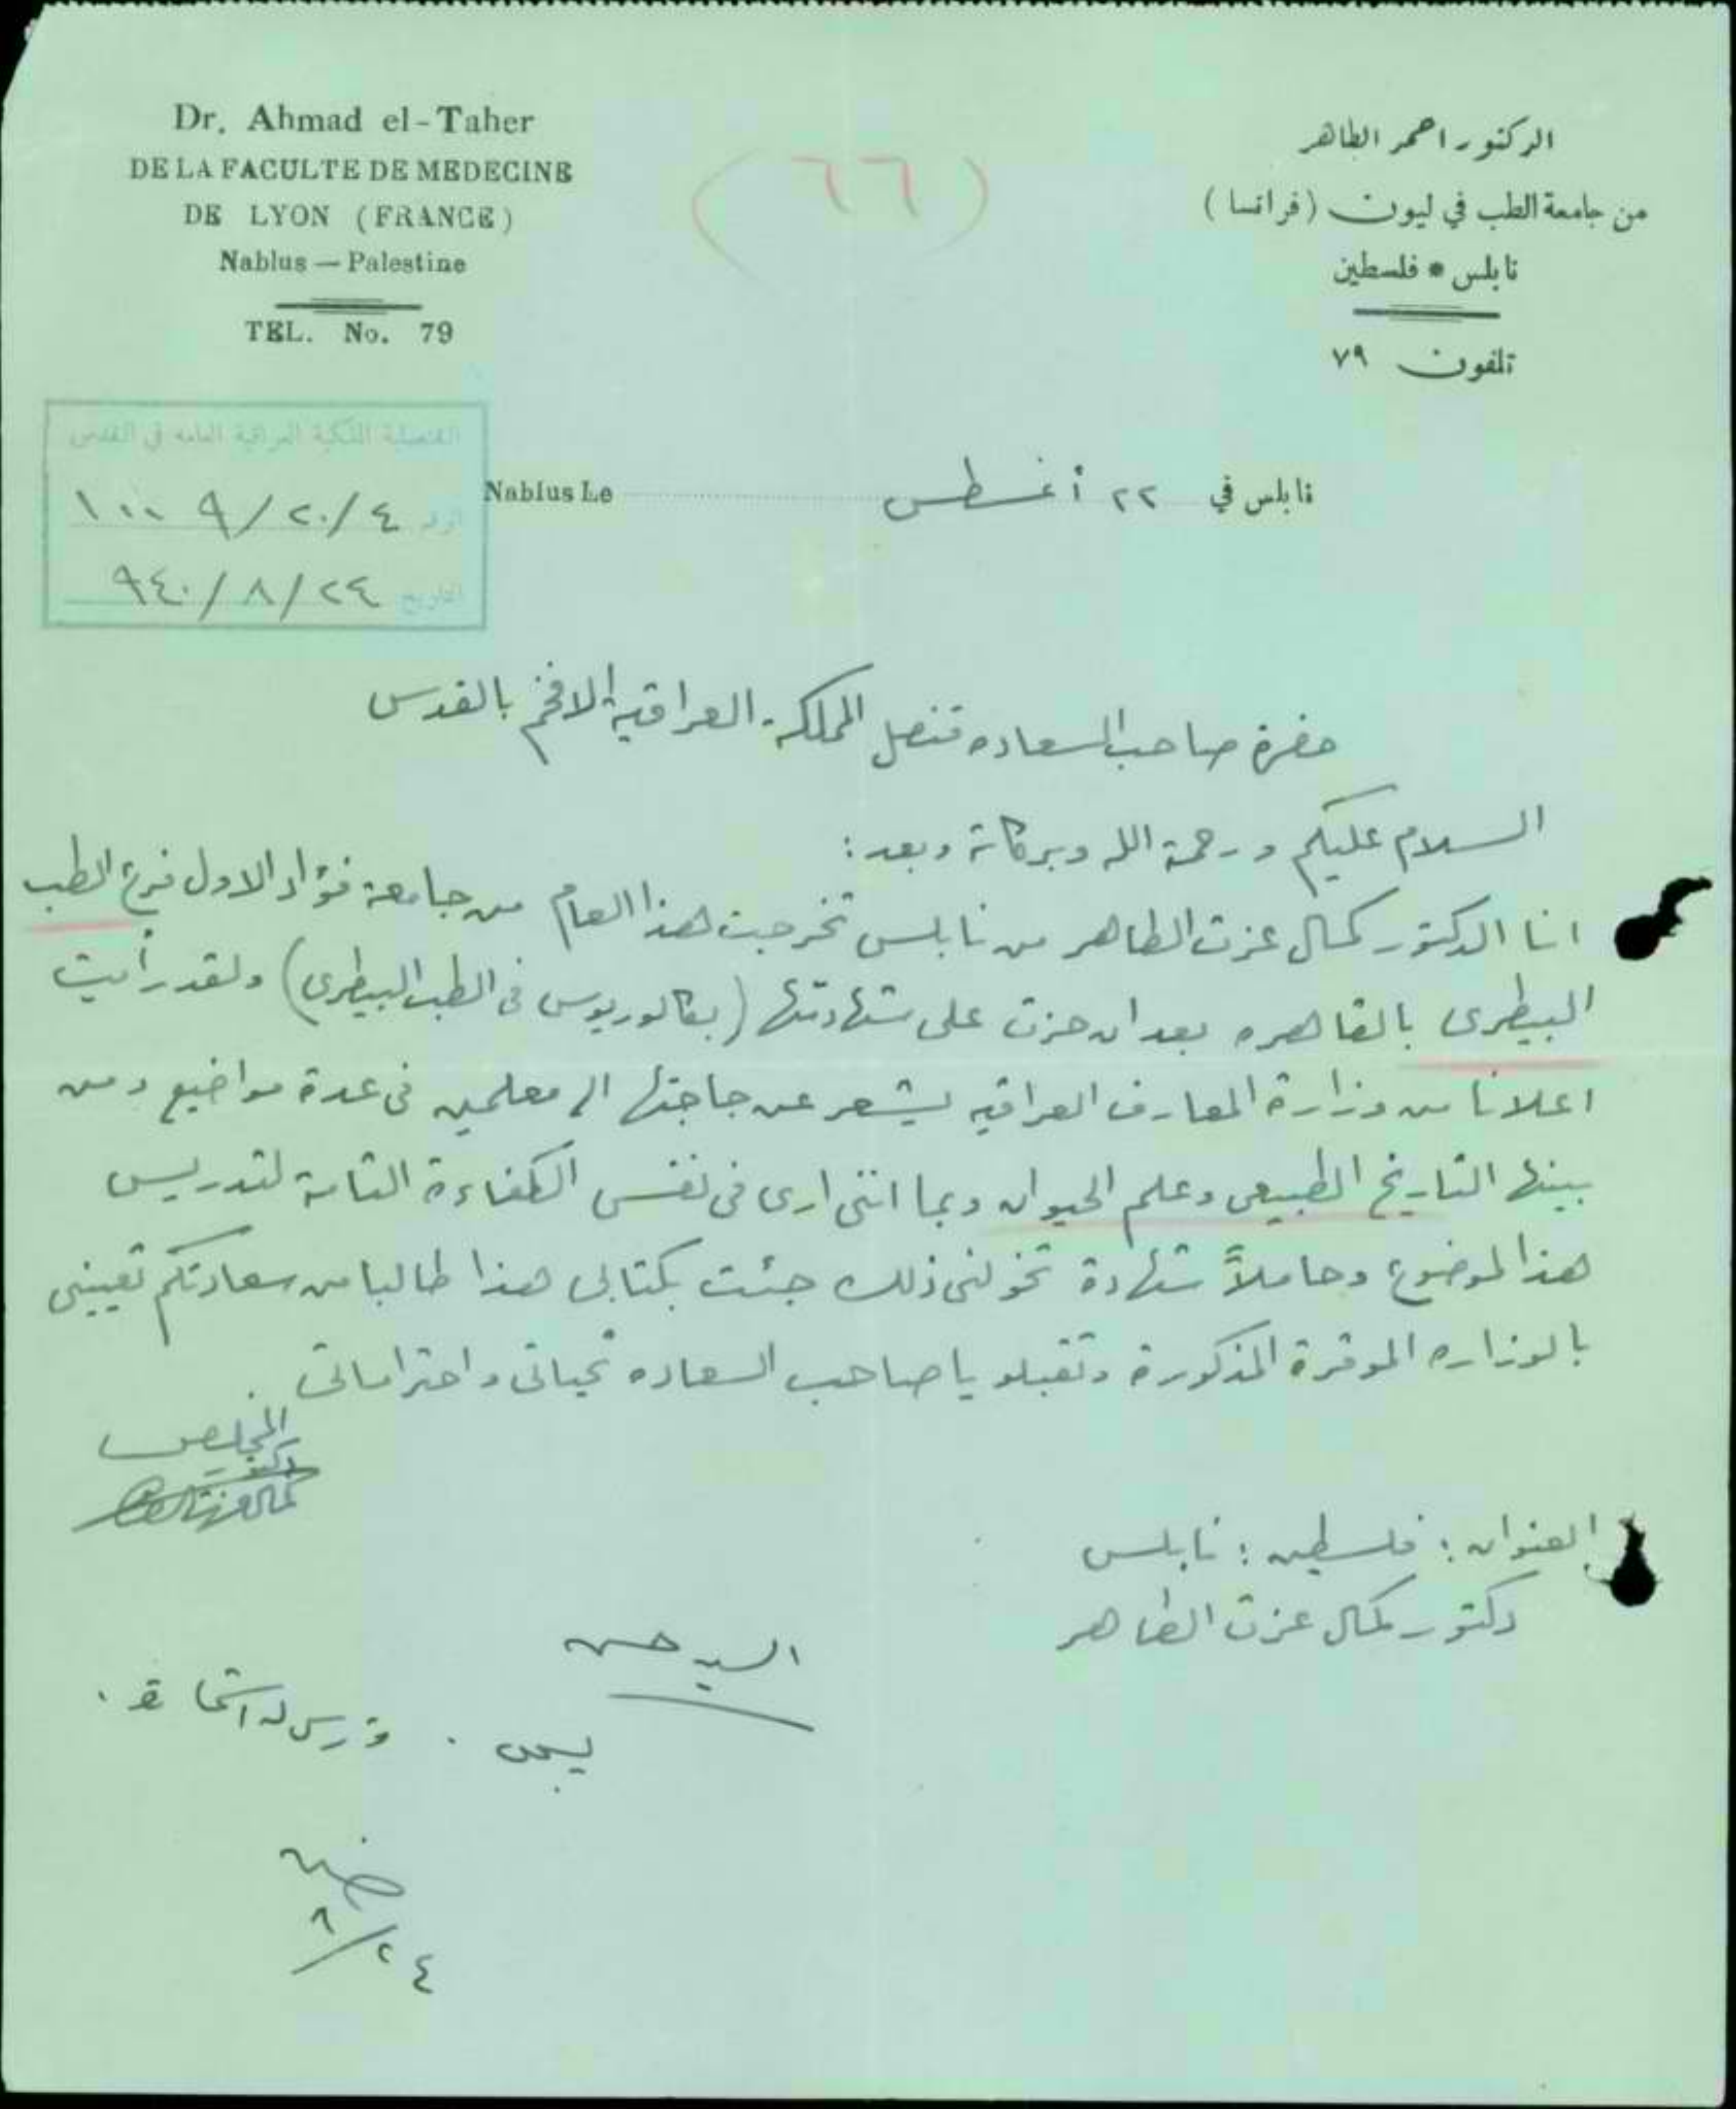 Dr. Ahmad el-Taher
DE LA FACULTE DE MEDECINE
DE LYON (FRANCE)
Nablus — Palestine
TEL. No. 79
(٦٦)
الدكتور احمد الطاهر
من جامعة الطب في ليون (فرانسا)
نابلس * فلسطين
تلفون ٧٩
القنصلية الملكية العراقية العامة في القدس
١٠٠٩/٢٠/٤
التاريخ ٩٤٠/٨/٢٤
Nablus Le نابلس في ٢٢ أغسطس
حضرة صاحب السعاده قنصل المملكة العراقية الافخم بالقدس
السلام عليكم ورحمة الله وبركاته وبعد:
انا الدكتور كمال عزت الطاهر من نابلس تخرجت هذا العام من جامعة فؤاد الاول فرع الطب
البيطرى بالقاهره بعد ان حزت على شهادتها (بكالوريوس فى الطب البيطرى) ولقد رأيت
اعلانا من وزارة المعارف العراقيه يشعر عن حاجتها الى معلمين فى عدة مواضيع ومن
بينها التاريخ الطبيعى وعلم الحيوان وبما اننى ارى فى نفسى الكفاءة التامة لتدريس
هذا الموضوع وحاملاً شهادة تخولنى ذلك جئت بكتابى هذا طالبا من سعادتكم تعيينى
بالوزاره الموقرة المذكورة وتقبلو يا صاحب السعاده تحياتى واحتراماتى.
المخلص
دكتور
كمال عزت الطاهر
العنوان: فلسطين: نابلس
دكتور كمال عزت الطاهر
السيد حسن
٨/٢٤